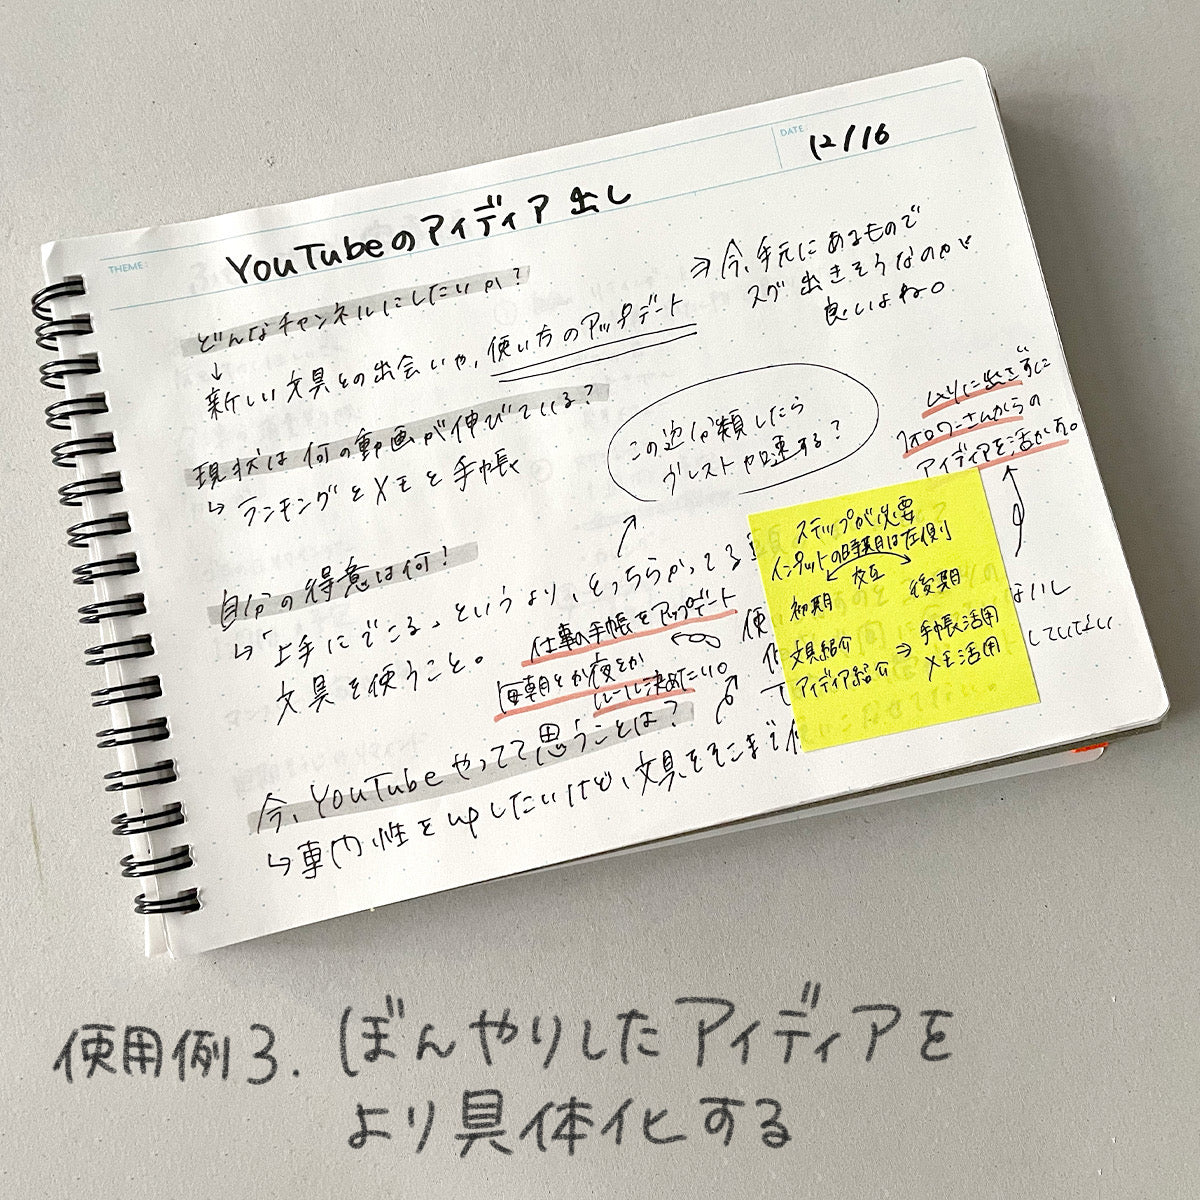 THEME:
YouTubeのアイディア出し
DATE
12/16
どんなチャンネルにしたいか?
↓
新しい文具との出会いや、使い方のアップデート
⇒今、手元にあるもので
スグ出きそうなのが
良いよね。
現状は何の動画が伸びている?
↳ ランキングとメモと手帳
この辺分類したら
ブレストや加速する?
ムリに出さずに
フォロワーさんからの
アイディアを活かす。
自分の得意は何!
↳「上手にできる、というより、とっちらかってる
文具を使うこと。
仕事の手帳をアップデート
毎朝とか夜とか
ルール決めたい。
ステップが必要
インプットの時期は左側
交互
初期
後期
文具紹介 ⇒ 手帳活用
アイディア紹介
メモ活用
ないし
していない
今、YouTubeやってて思うことは?
↳ 専門性をupしたいけど、文具をそこまで使いこなせてない。
使用例3. ぼんやりしたアイディアを
より具体化する